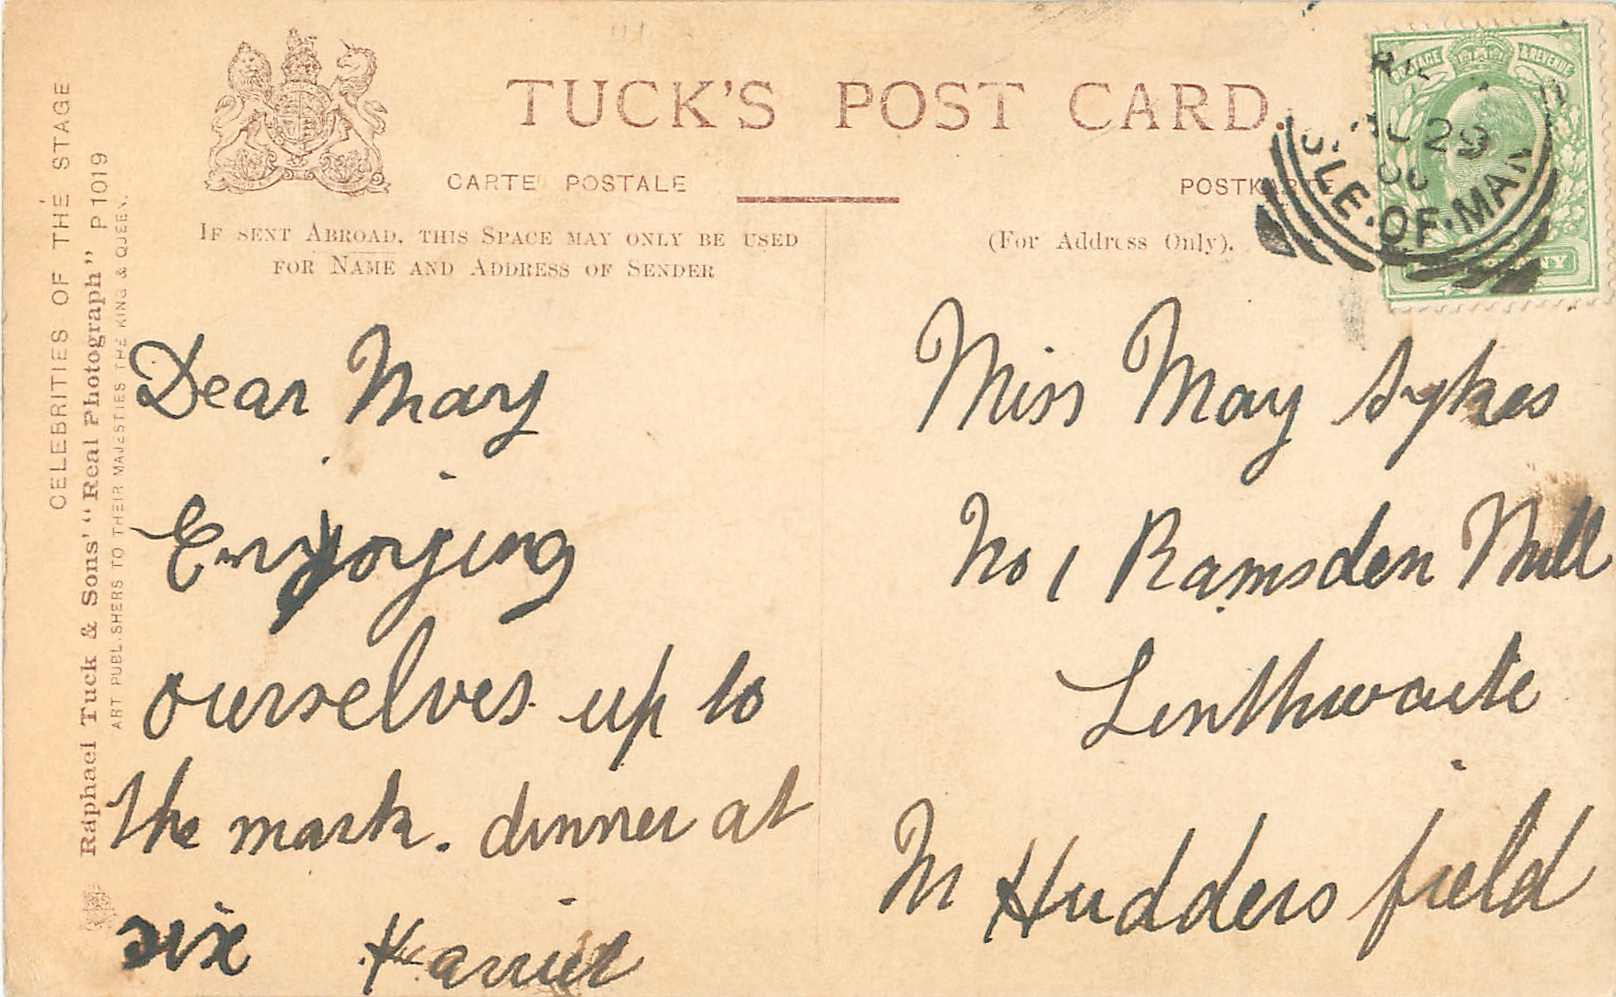 TUCK'S POST CARD.
CARTE POSTALE
POSTKARTE
IF SENT ABROAD, THIS SPACE MAY ONLY BE USED
FOR NAME AND ADDRESS OF SENDER
(For Address Only).
CELEBRITIES OF THE STAGE
Raphael Tuck & Sons' "Real Photograph" P 1019
ART PUBLISHERS TO THEIR MAJESTIES THE KING & QUEEN.
POSTAGE & REVENUE
29
ISLE·OF·MAN
Dear May
Enjoying
ourselves up to
the mark. dinner at
six Harriet
Miss May Sykes
No 1 Ramsden Mill
Linthwaite
Nr Huddersfield